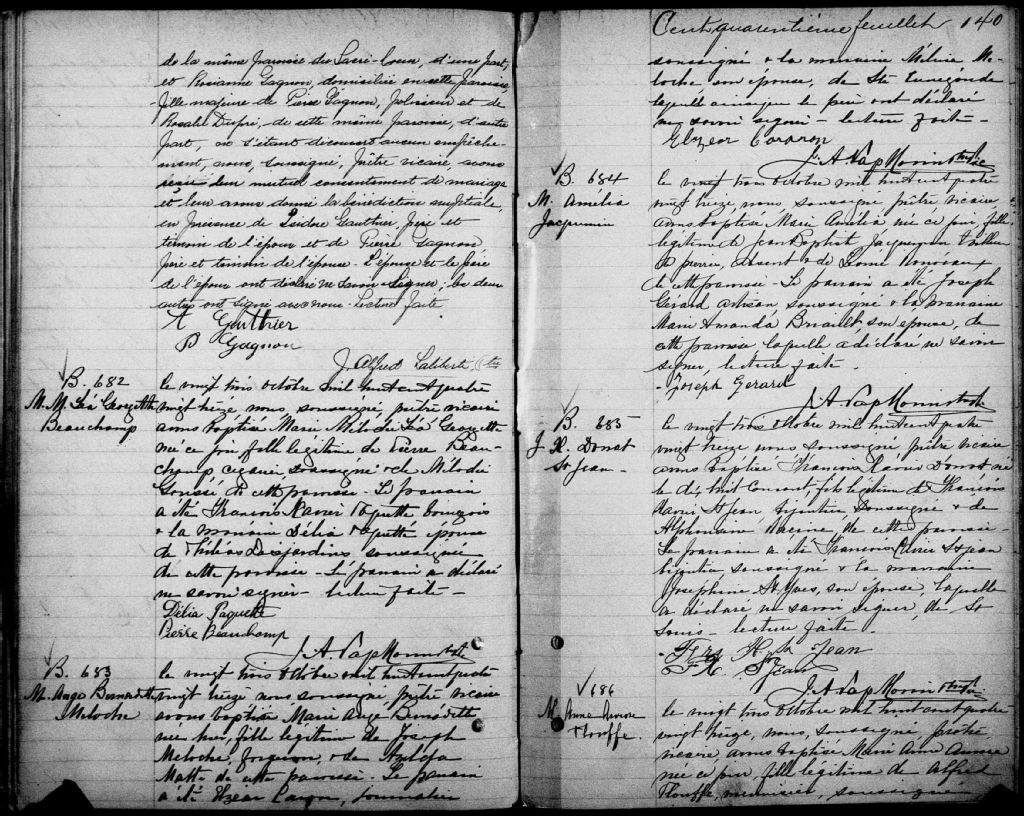 de la même paroisse du Sacré-Coeur, d'une part,
et Rosanne Gagnon, domiciliée en cette paroisse
fille majeure de Pierre Gagnon, et de
Rosalie Dupré, de cette même paroisse, d'autre
part, ne s'étant découvert aucun empêche-
ment, nous, soussigné, Prêtre vicaire, avons
reçu leur mutuel consentement de mariage
et leur avons donné la bénédiction nuptiale,
en présence de Isidore Gauthier, père et
témoin de l'époux et de Pierre Gagnon,
père et témoin de l'épouse. L'épouse et le père
de l'époux ont déclaré ne savoir signer; les deux
autres ont signé avec nous. Lecture faite
A Gauthier
P Gagnon
J. Alfred Laliberté, Ptre
B. 682
M. M. Léa Georgette
Beauchamp
le vingt trois octobre mil huit cent quatre
vingt treize nous soussigné, prêtre vicaire
avons baptisé Marie Mélodie Léa Georgette
née ce jour fille légitime de Pierre Beau-
champ soussigné & de Mélodie
de cette paroisse. Le parrain
a été François Xavier Paquette bourgeois
& la marraine Délia Paquette épouse
de Desjardins soussignée
de cette paroisse. Le parrain a déclaré
ne savoir signer. lecture faite -
Délia Paquette
Pierre Beauchamp
J. A. Pap Monin ptre
B. 683
M. Ange Bernadette
Meloche
le vingt trois octobre mil huit cent quatre
vingt treize nous soussigné prêtre vicaire
avons baptisé Marie Ange Bernadette
née hier, fille légitime de Joseph
Meloche, forgeron, & de
Matte de cette paroisse. Le parrain
a été Elzéar Caron,
Cent quarantième feuillet 140
soussigné & la marraine Mélina Me-
loche, son épouse, de Ste Cunégonde
laquelle ainsi que le père ont déclaré
ne savoir signer - lecture faite -
Elzear
J. A. Pap Monin ptre Vic
B. 684
M. Amélia
Jacquemin
le vingt trois octobre mil huit cent quatre
vingt treize, nous soussigné prêtre vicaire,
avons baptisé Marie Amélia née ce jour, fille
légitime de Jean Baptiste Jacquemin tailleur
de pierre, absent & de Léonie
de cette paroisse. Le parrain a été Joseph
Gérard artisan soussigné & la marraine
Marie Amanda Briault, son épouse, de
cette paroisse laquelle a déclaré ne savoir
signer, lecture faite.
- Joseph Gerard
J. A. Pap Monin ptre
B. 685
J. X. Donat
St Jean -
le vingt trois octobre mil huit cent quatre
vingt treize nous soussigné, prêtre vicaire
avons baptisé François Xavier Donat né
le dix huit courant, fils légitime de François
Xavier St Jean bijoutier soussigné & de
Alphonsine Racine de cette paroisse.
Le parrain a été François Olivier St Jean
bijoutier soussigné & la marraine
Joséphine St Yves, son épouse laquelle
a déclaré ne savoir signer, de St
Louis - lecture faite.
Jean
F X St Jean
J. A. Pap Monin ptre Vic
686
M. Anna Aurore
Plouffe.
le vingt trois octobre mil huit cent quatre
vingt treize, nous, soussigné, prêtre
vicaire avons baptisé Marie Anna Aurore
née ce jour, fille légitime de Alfred
Plouffe, menuisier, soussigné